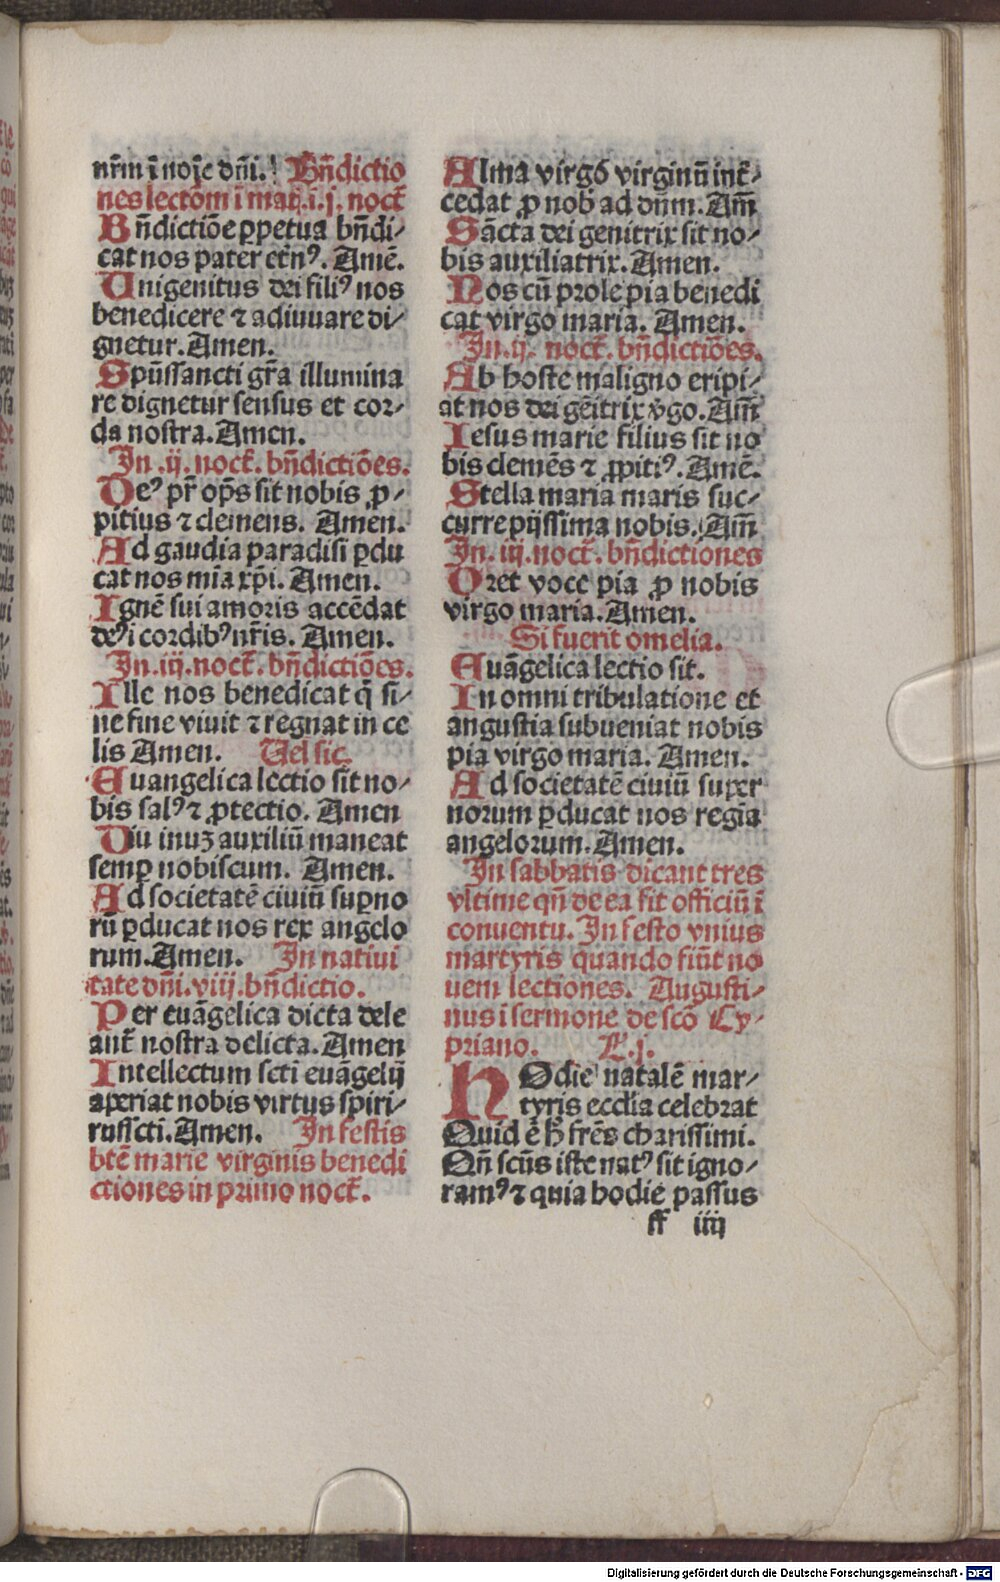 nr̄m ī noīe dn̄i. Bn̄dictio
nes lectom̄ ī mat̄. i. j. noct̄
Bn̄dictiōe ꝑpetua bn̄di⸗
cat nos pater et̄nꝰ. Amē.
Unigenitus dei filiꝰ nos
benedicere ⁊ adiuuare di⸗
gnetur. Amen.
Spūssancti gr̄a illumina
re dignetur sensus et cor⸗
da nostra. Amen.
In .ij. noct̄. bn̄dictiōes.
Deꝰ pr̄ op̄s sit nobis ꝓ⸗
pitius ⁊ clemens. Amen.
Ad gaudia paradisi ꝑdu
cat nos mīa xp̄i. Amen.
Ignē sui amoris accēdat
deꝰ ī cordibꝰ nr̄is. Amen.
In .iij. noct̄. bn̄dictiōes.
Ille nos benedicat q̄ si⸗
ne fine viuit ⁊ regnat in ce
lis Amen. Uel sic.
Euangelica lectio sit no⸗
bis salꝰ ⁊ ꝓtectio. Amen
Diuinuꝫ auxiliū maneat
semꝑ nobiscum. Amen.
Ad societatē ciuiū suꝑno
rū ꝑducat nos rex angelo
rum. Amen. In natiui
tate dn̄i. viij. bn̄dictio.
Per euāgelica dicta dele
ant̄ nostra delicta. Amen
Intellectum scti euāgelij
aperiat nobis virtus spiri⸗
tussctī. Amen. In festis
btē marie virginis benedi
ctiones in primo noct̄.
Alma virgo virginū int̄⸗
cedat ꝓ nob̄ ad dn̄m. Am̄
Sācta dei genitrix sit no⸗
bis auxiliatrix. Amen.
Nos cū prole pia benedi
cat virgo maria. Amen.
In .ij. noct̄. bn̄dictiōes.
Ab hoste maligno eripi⸗
at nos dei gēitrix v̄go. Am̄
Iesus marie filius sit no
bis clemēs ⁊ ꝓpitiꝰ. Amē.
Stella maria maris suc⸗
curre pijssima nobis. Am̄
In .iij. noct̄. bn̄dictiones
Oret voce pia ꝓ nobis
virgo maria. Amen.
Si fuerit omelia.
Euāgelica lectio sit.
In omni tribulatione et
angustia subueniat nobis
pia virgo maria. Amen.
Ad societatē ciuiū super
norum ꝑducat nos regia
angelorum. Amen.
In sabbatis dicant tres
vltime qn̄ de ea fit officiū ī
conuentu. In festo vnius
martyris quando fiūt no
uem lectiones. Augusti⸗
nus ī sermone de scō Cy⸗
priano. L. j.
HOdie natalē mar⸗
tyris ecclia celebrat
Quid ē h̄ frēs charissimi.
Qn̄ scūs iste natꝰ sit igno⸗
ramꝰ ⁊ quia hodie passus
ff iiij
Digitalisierung gefördert durch die Deutsche Forschungsgemeinschaft - DFG